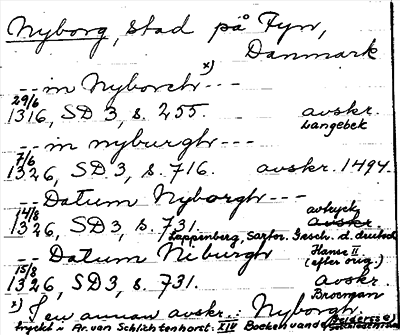 Nyborg, stad på Fyn,
Danmark
-- in Nyborch x) --
29/6
1316, SD 3, s. 255. avskr.
Langebek
-- in nyburgh --
7/6
1326, SD 3, s. 716. avskr. 1494.
-- Datum Nyborgh --
14/8 avtryck
1326, SD 3, s. 731. avskr
Lappenberg, Sartor. Gesch. d. deutsch
Hanse II
-- Datum Neburgh (efter orig.)
15/8
1326, SD 3, s. 731. avskr.
Broman
x) I en annan avskr.: Nyborgh.
tryckt Ar. van Schlichtenhorst. XIV Boeken van de